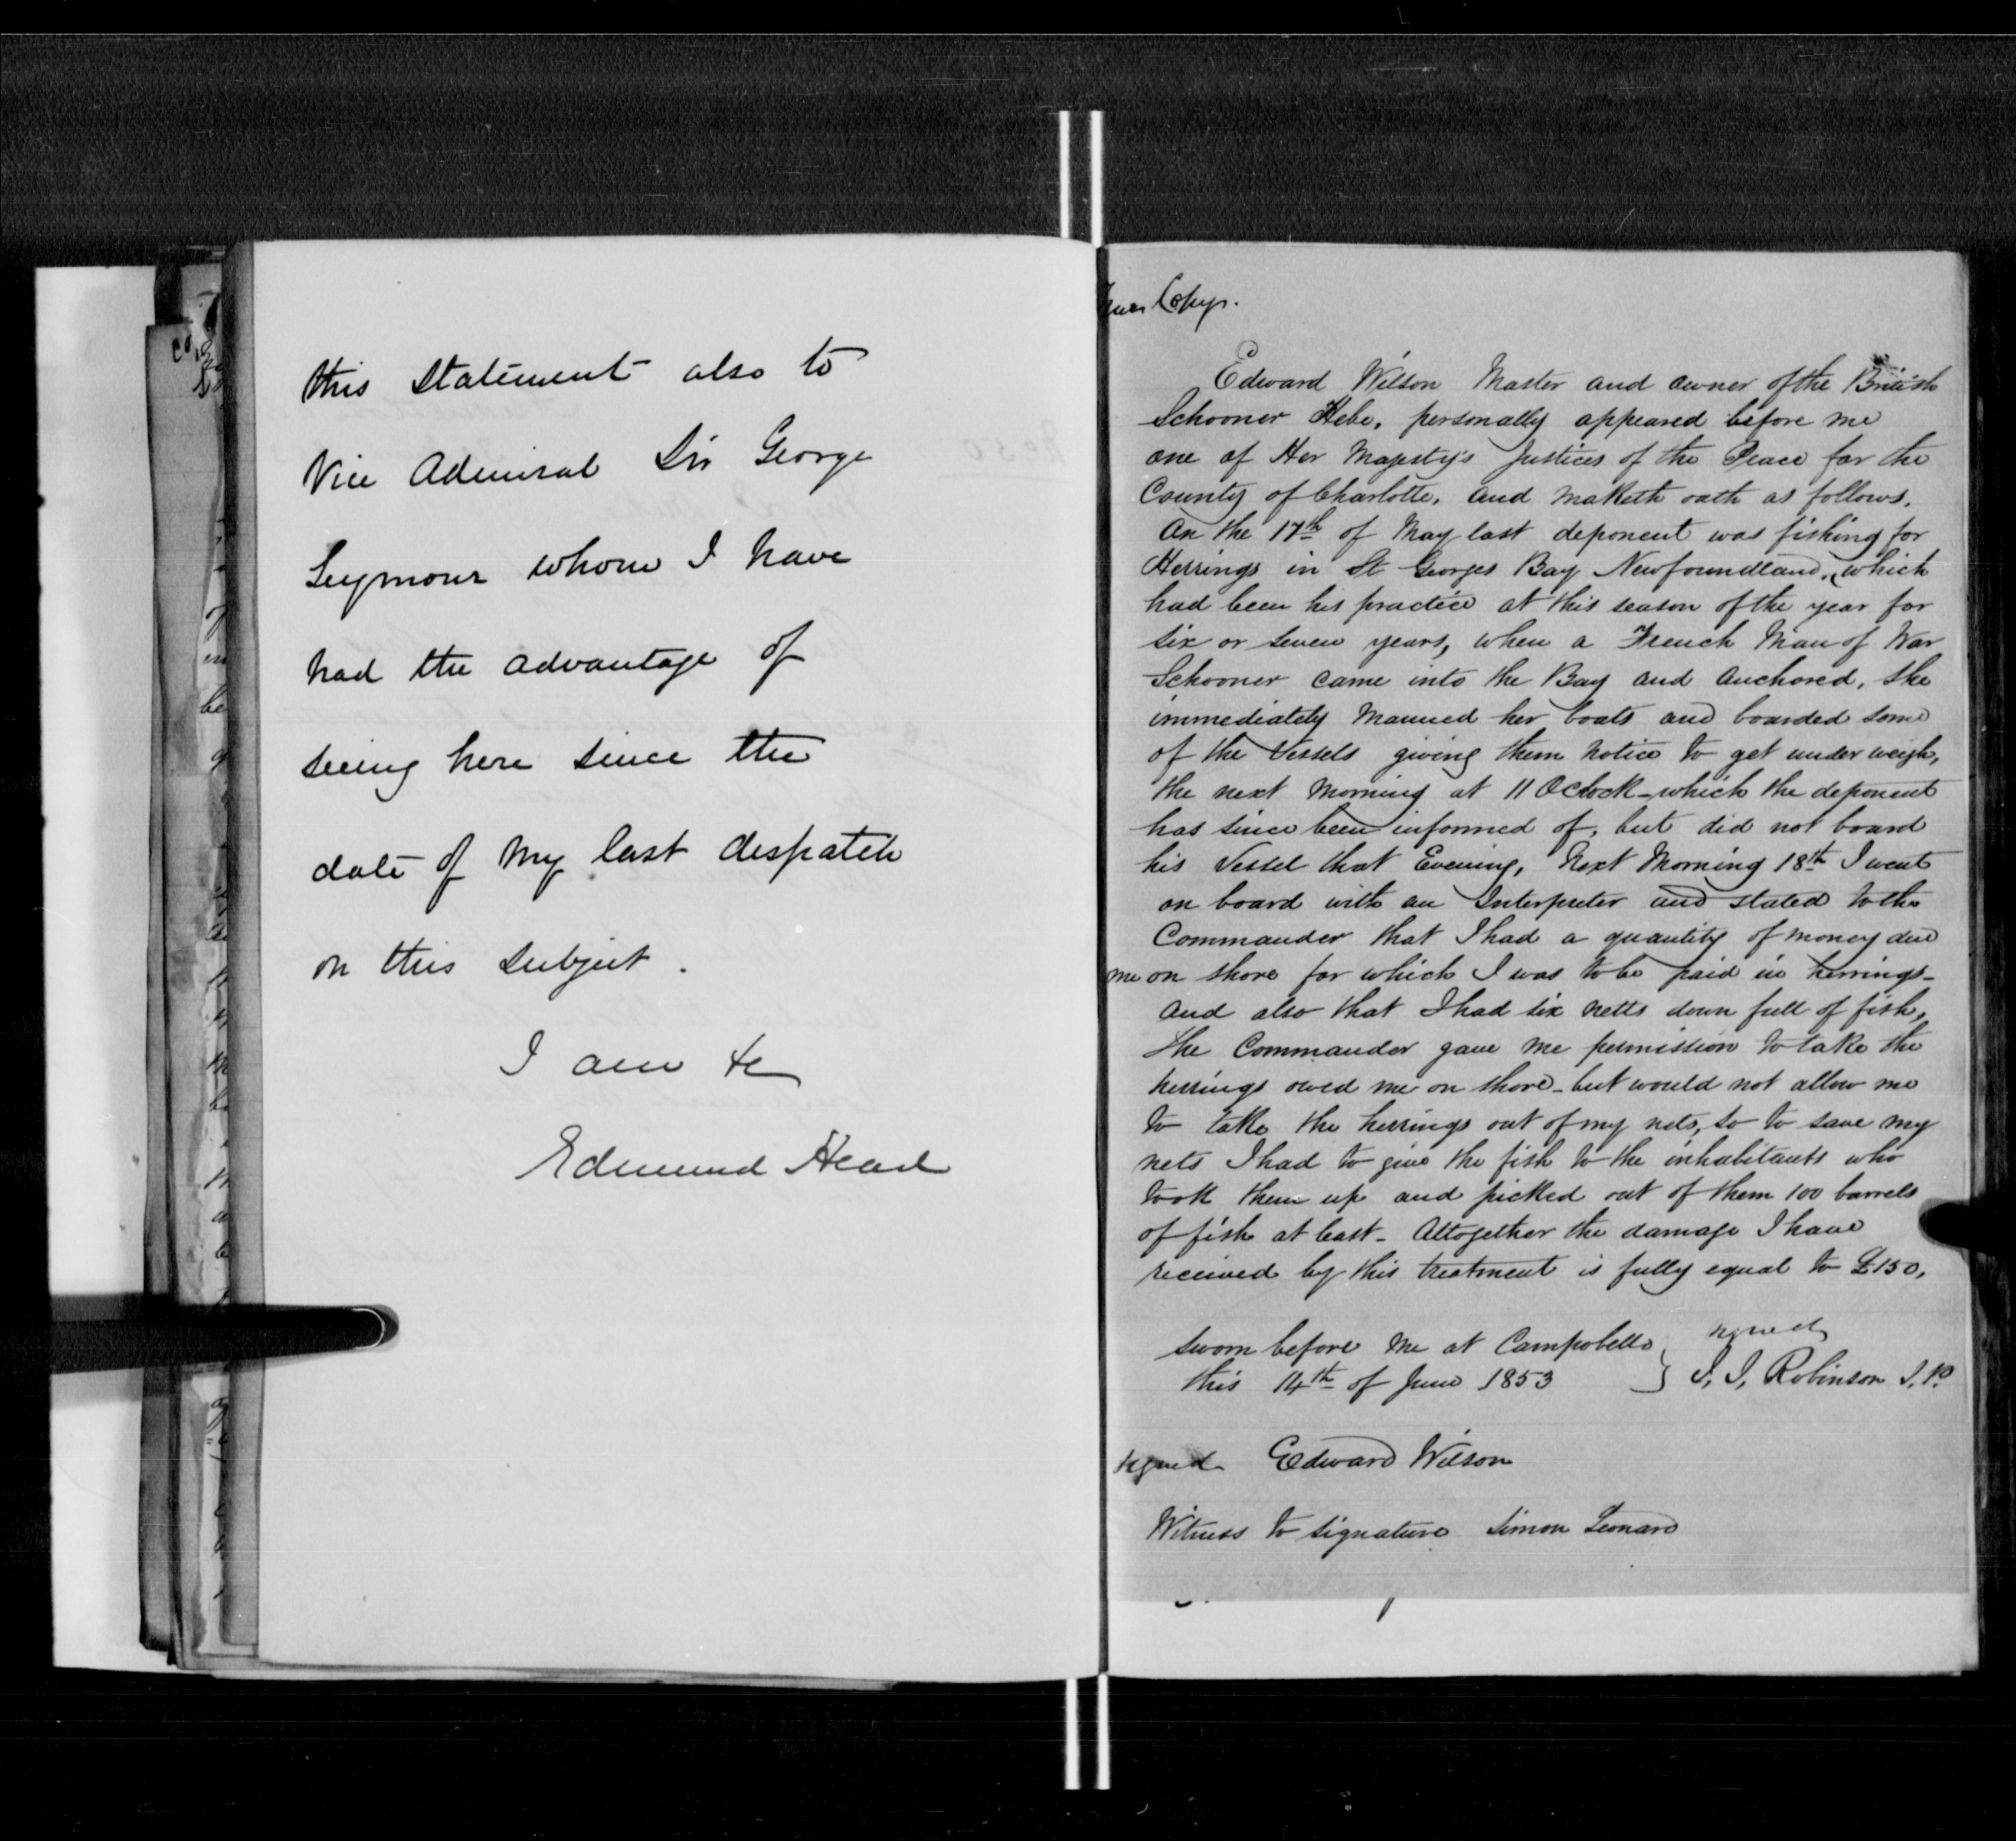 this Statement also to
Vice Admiral Sir George
Seymour whom I have
had the advantage of
seeing here since the
date of my last despatch
on this subject.
I am &c
Edmund Head
True Copy.
Edward Wilson Master and owner of the British
Schooner Hebe, personally appeared before me
one of Her Majesty's Justices of the Peace for the
County of Charlotte, and maketh oath as follows.
On the 17th of May last deponent was fishing for
Herrings in St Georges Bay Newfoundland, which
had been his practice at this season of the year for
six or seven years, when a French Man of War
Schooner came into the Bay and anchored, she
immediately manned her boats and boarded some
of the vessels giving them notice to get under weigh,
the next morning at 11 OClock - which the deponent
has since been informed of, but did not board
his vessel that Evening, Next Morning 18th I went
on board with an Interpreter and stated to the
Commander that I had a quantity of money due
me on shore for which I was to be paid in herrings -
and also that I had six netts down full of fish,
the Commander gave me permission to take the
herrings owed me on shore - but would not allow me
to take the herrings out of my nets, so to save my
nets I had to give the fish to the inhabitants who
took them up and picked out of them 100 barrels
of fish at least - Altogether the damage I have
received by this treatment is fully equal to £150,
Sworn before me at Campobello
this 14th of June 1853
signed
J. J. Robinson J. P.
signed Edward Wilson
Witness to signature Simon Leonard